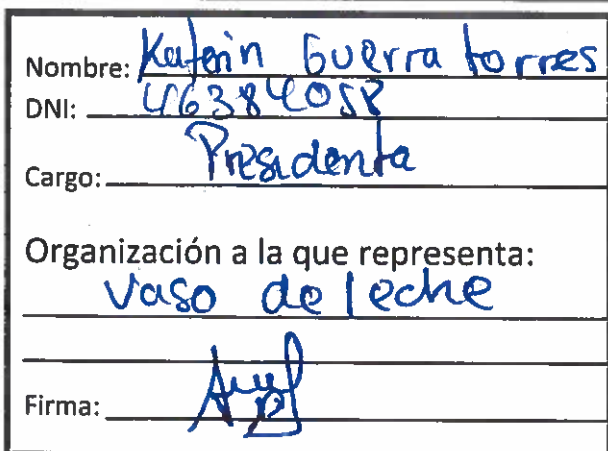 Nombre: Katerin Guerra torres
DNI: 46384058
Cargo: Presidenta
Organización a la que representa:
Vaso de leche
Firma: